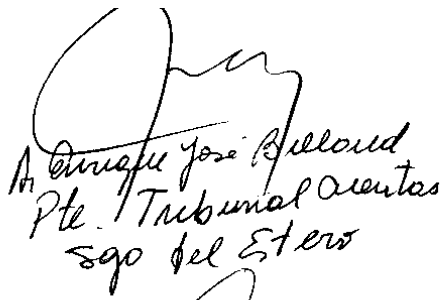 Enrique José Billaud
Pte. Tribunal Cuentas
Sgo del Estero